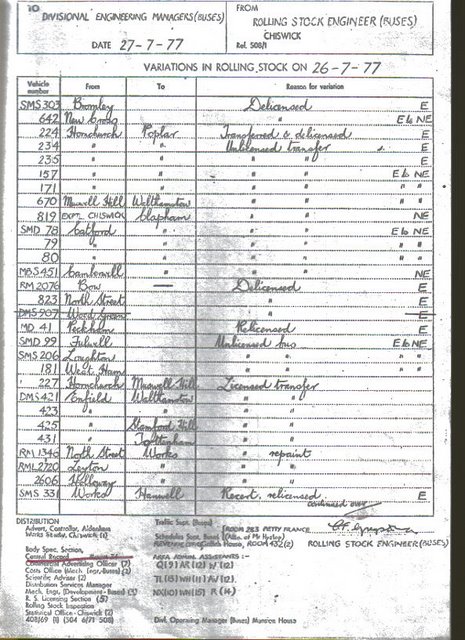 TO
DIVISIONAL ENGINEERING MANAGERS (BUSES)
DATE 27-7-77
FROM
ROLLING STOCK ENGINEER (BUSES)
CHISWICK
Ref. 508/1
VARIATIONS IN ROLLING STOCK ON 26-7-77
Vehicle number From To Reason for variation
SMS 303 Bromley Delicensed E
642 New Cross " E6 NE
224 Hornchurch Poplar Transferred & delicensed E
234 " " Unlicensed transfer E
235 " " " " E
157 " " " " E6 NE
171 " " " " " "
670 Muswell Hill Walthamstow " " " "
819 EXPT. CHISWICK Clapham " " NE
SMD 78 Catford " " E6 NE
79 " " " " "
80 " " " " "
MBS 451 Camberwell " " NE
RM 2076 Bow — Delicensed E
823 North Street " E
DMS 907 Wood Green " E
MD 41 Peckham Relicensed E
SMD 99 Fulwell Unlicensed bus E6 NE
SMS 206 Loughton " " " "
181 West Ham " " "
227 Hornchurch Muswell Hill Licensed transfer
DMS 421 Enfield Walthamstow " "
423 " " " "
425 " Stamford Hill " "
431 " Tottenham " "
RM 1346 North Street Works " repaint
RML 2720 Leyton " " "
2606 Holloway " " "
SMS 331 Works Hanwell Recert. relicensed E
continued over
DISTRIBUTION
Advert. Controller, Aldenham
Works Study, Chiswick (1)
Body Spec. Section,
Central Record
Commercial Advertising Officer (7)
Costs Office (Mech. Engr. Buses) (2)
Scientific Adviser (2)
Distribution Services Manager
Mech. Engr. (Development - Buses)
R. S. Licensing Section
Rolling Stock Inspection
Statistical Office - Chiswick (2)
408/69 (1) (504 6/71 508)
Traffic Supt. (Buses)
ROOM 283 PETTY FRANCE
Scheduling Supt. (Buses)
ROOM 432(2)
AREA ADMN. ASSISTANTS :-
Q(9) AR(12) W(12)
TL(15) WH(11) AV(12)
NX(10) WN(15) R(14)
Divl. Operating Manager (Buses) Mansion House
ROLLING STOCK ENGINEER (BUSES)